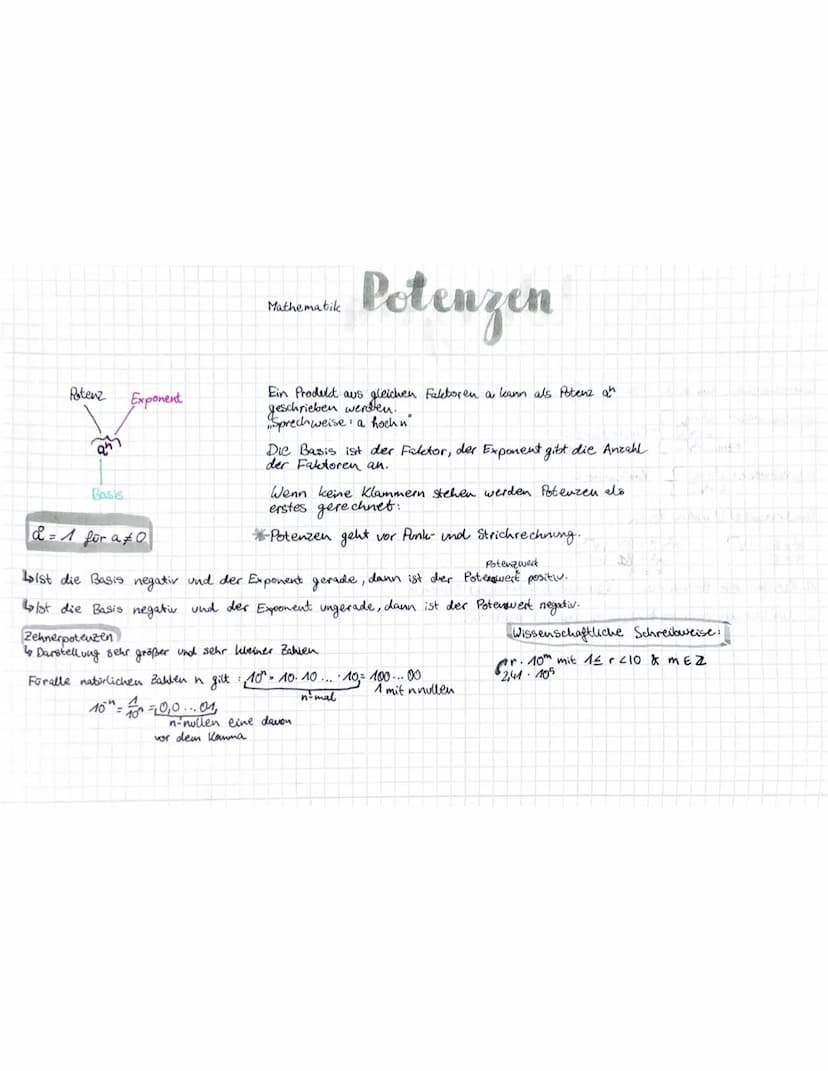 Mathematik Potenzen
Potenz
Exponent
aⁿ
Basis
Ein Produkt aus gleichen Faktoren a kann als Potenz aⁿ
geschrieben werden.
„Sprechweise: a hoch n"
Die Basis ist der Faktor, der Exponent gibt die Anzahl
der Faktoren an.
Wenn keine Klammern stehen werden Potenzen als
erstes gerechnet:
*Potenzen geht vor Punk- und Strichrechnung.
= 1 für a≠0
Potenzwert
↳Ist die Basis negativ und der Exponent gerade, dann ist der Potenzwert positiv.
↳Ist die Basis negativ und der Exponent ungerade, dann ist der Potenzwert negativ.
Zehnerpotenzen
↳ Darstellung sehr großer und sehr kleiner Zahlen
Für alle natürlichen Zahlen n gilt: 10ⁿ = 10·10... ·10 = 100...00
n-mal
1 mit n nullen
10⁻ⁿ = 1/10ⁿ = 0,0...01
n-nullen eine davon
vor dem Komma
Wissenschaftliche Schreibweise:
r · 10ᵐ mit 1≤ r <10 & m ∈ Z
2,41 · 10⁵